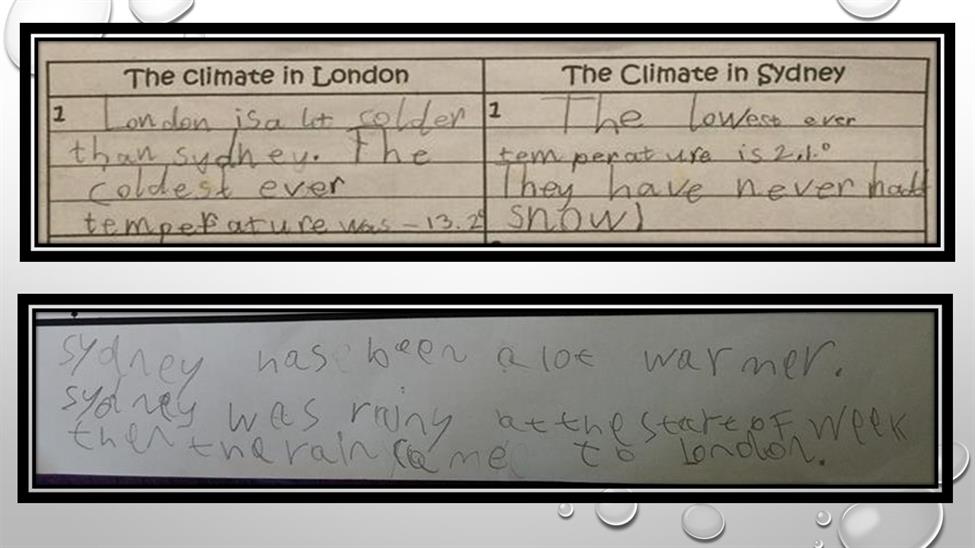 The climate in London
The Climate in Sydney
1 London is a lot colder
than sydney. The
coldest ever
temperature was -13.2°
1 The lowest ever
temperature is 2.1.°
They have never hadd
snow!
sydney has been a lot warmer.
sydney was rainy at the start of week
then the rain came to London.